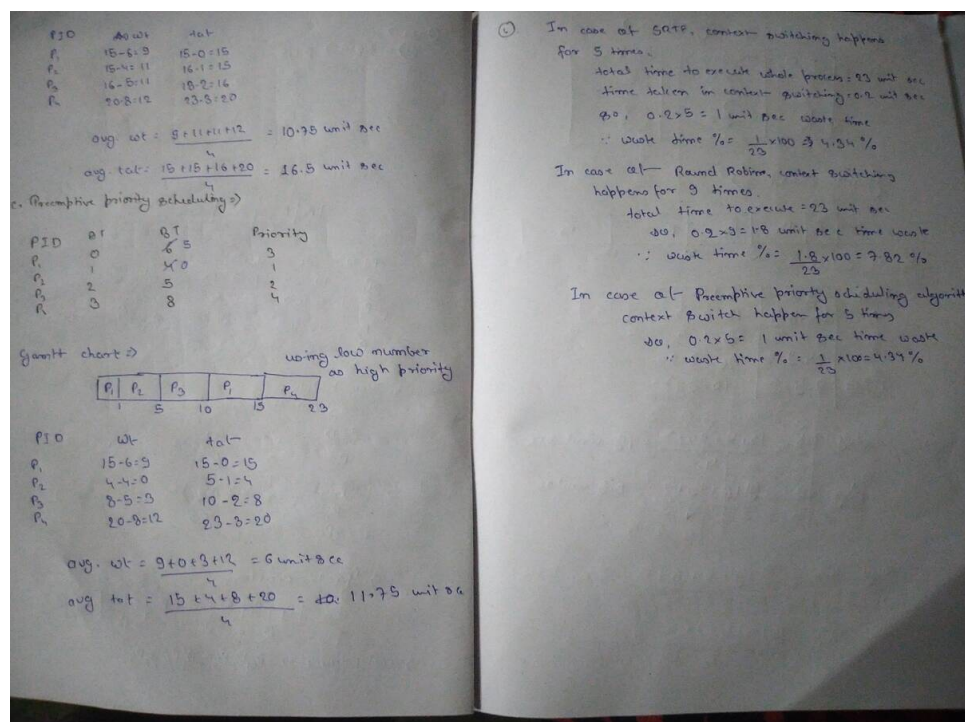 PID wt tat
P1 15-6=9 15-0=15
P2 15-4=11 16-1=15
P3 16-5=11 18-2=16
P4 20-8=12 23-3=20
avg. wt = 9+11+11+12 / 4 = 10.75 unit sec
avg. tat = 15+15+16+20 / 4 = 16.5 unit sec
c. Preemptive priority scheduling =>
PID BT BT Priority
P1 0 6 5 3
P2 1 4 0 1
P3 2 5 2
P4 3 8 4
Gantt chart => using low number
as high priority
P1 P2 P3 P1 P4
1 5 10 15 23
PID wt tat
P1 15-6=9 15-0=15
P2 4-4=0 5-1=4
P3 8-5=3 10-2=8
P4 20-8=12 23-3=20
avg. wt = 9+0+3+12 / 4 = 6 unit sec
avg tat = 15+4+8+20 / 4 = 11.75 unit sec
In case of SRTF, context switching happens
for 5 times.
total time to execute whole process = 23 unit sec
time taken in context switching = 0.2 unit sec
so, 0.2x5 = 1 unit sec waste time
∴ waste time % = 1/23 x100 => 4.34 %
In case of Round Robine, context switching
happens for 9 times.
total time to execute = 23 unit sec
so, 0.2x9 = 1.8 unit sec time waste
∴ waste time % = 1.8/23 x100 = 7.82 %
In case of Preemptive priorty scheduling algorith
context switch happen for 5 times
so, 0.2x5 = 1 unit sec time waste
∴ waste time % = 1/23 x100 = 4.34 %